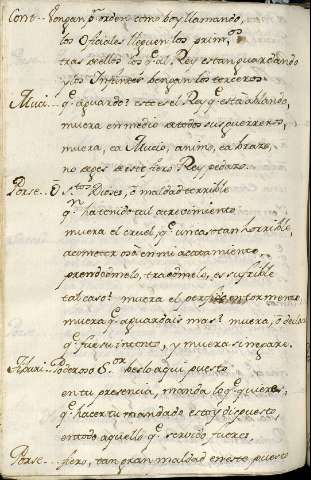 Cont... Vengan pr orden como boy llamando,
los Oficiales lleguen los primos
tras dellos los qe al Rey estan guardando
y los Infantes vengan los terceros
Muci... qe aguardo? este es el Rey qe està ablando,
muera en medio de todos sus guerreros,
muera, ea Mucio, animo, ea brazo,
no dejes de este fiero Rey pedazo.
Porse... O Stos Dioses, ò maldad terrible
qn ha tenido tal atrevimiento
muera el cruel, qe un caso tan horrible,
acometer osò en mi acatamiento,
prendedmelo, traedmelo, es sufrible
tal caso? muera el perfido en tormento,
muera, qe aguardais mas? muera, ò declare
qe fue su intento, y muera sin repare.
Poderoso Sor beslo aqui puesto
en tu presencia, manda lo qe quieres,
qe hacer tu mandado estoy dispuesto
en todo aquello qe servido fueres.
Porse... fiero, tan gran maldad en este puesto